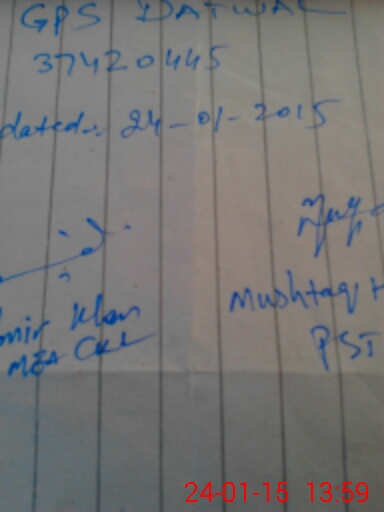 GPS DATWAL
37420445
dated:. 24-01-2015
mir Khan
MEA
Mushtaq H
PST
24-01-15 13:59